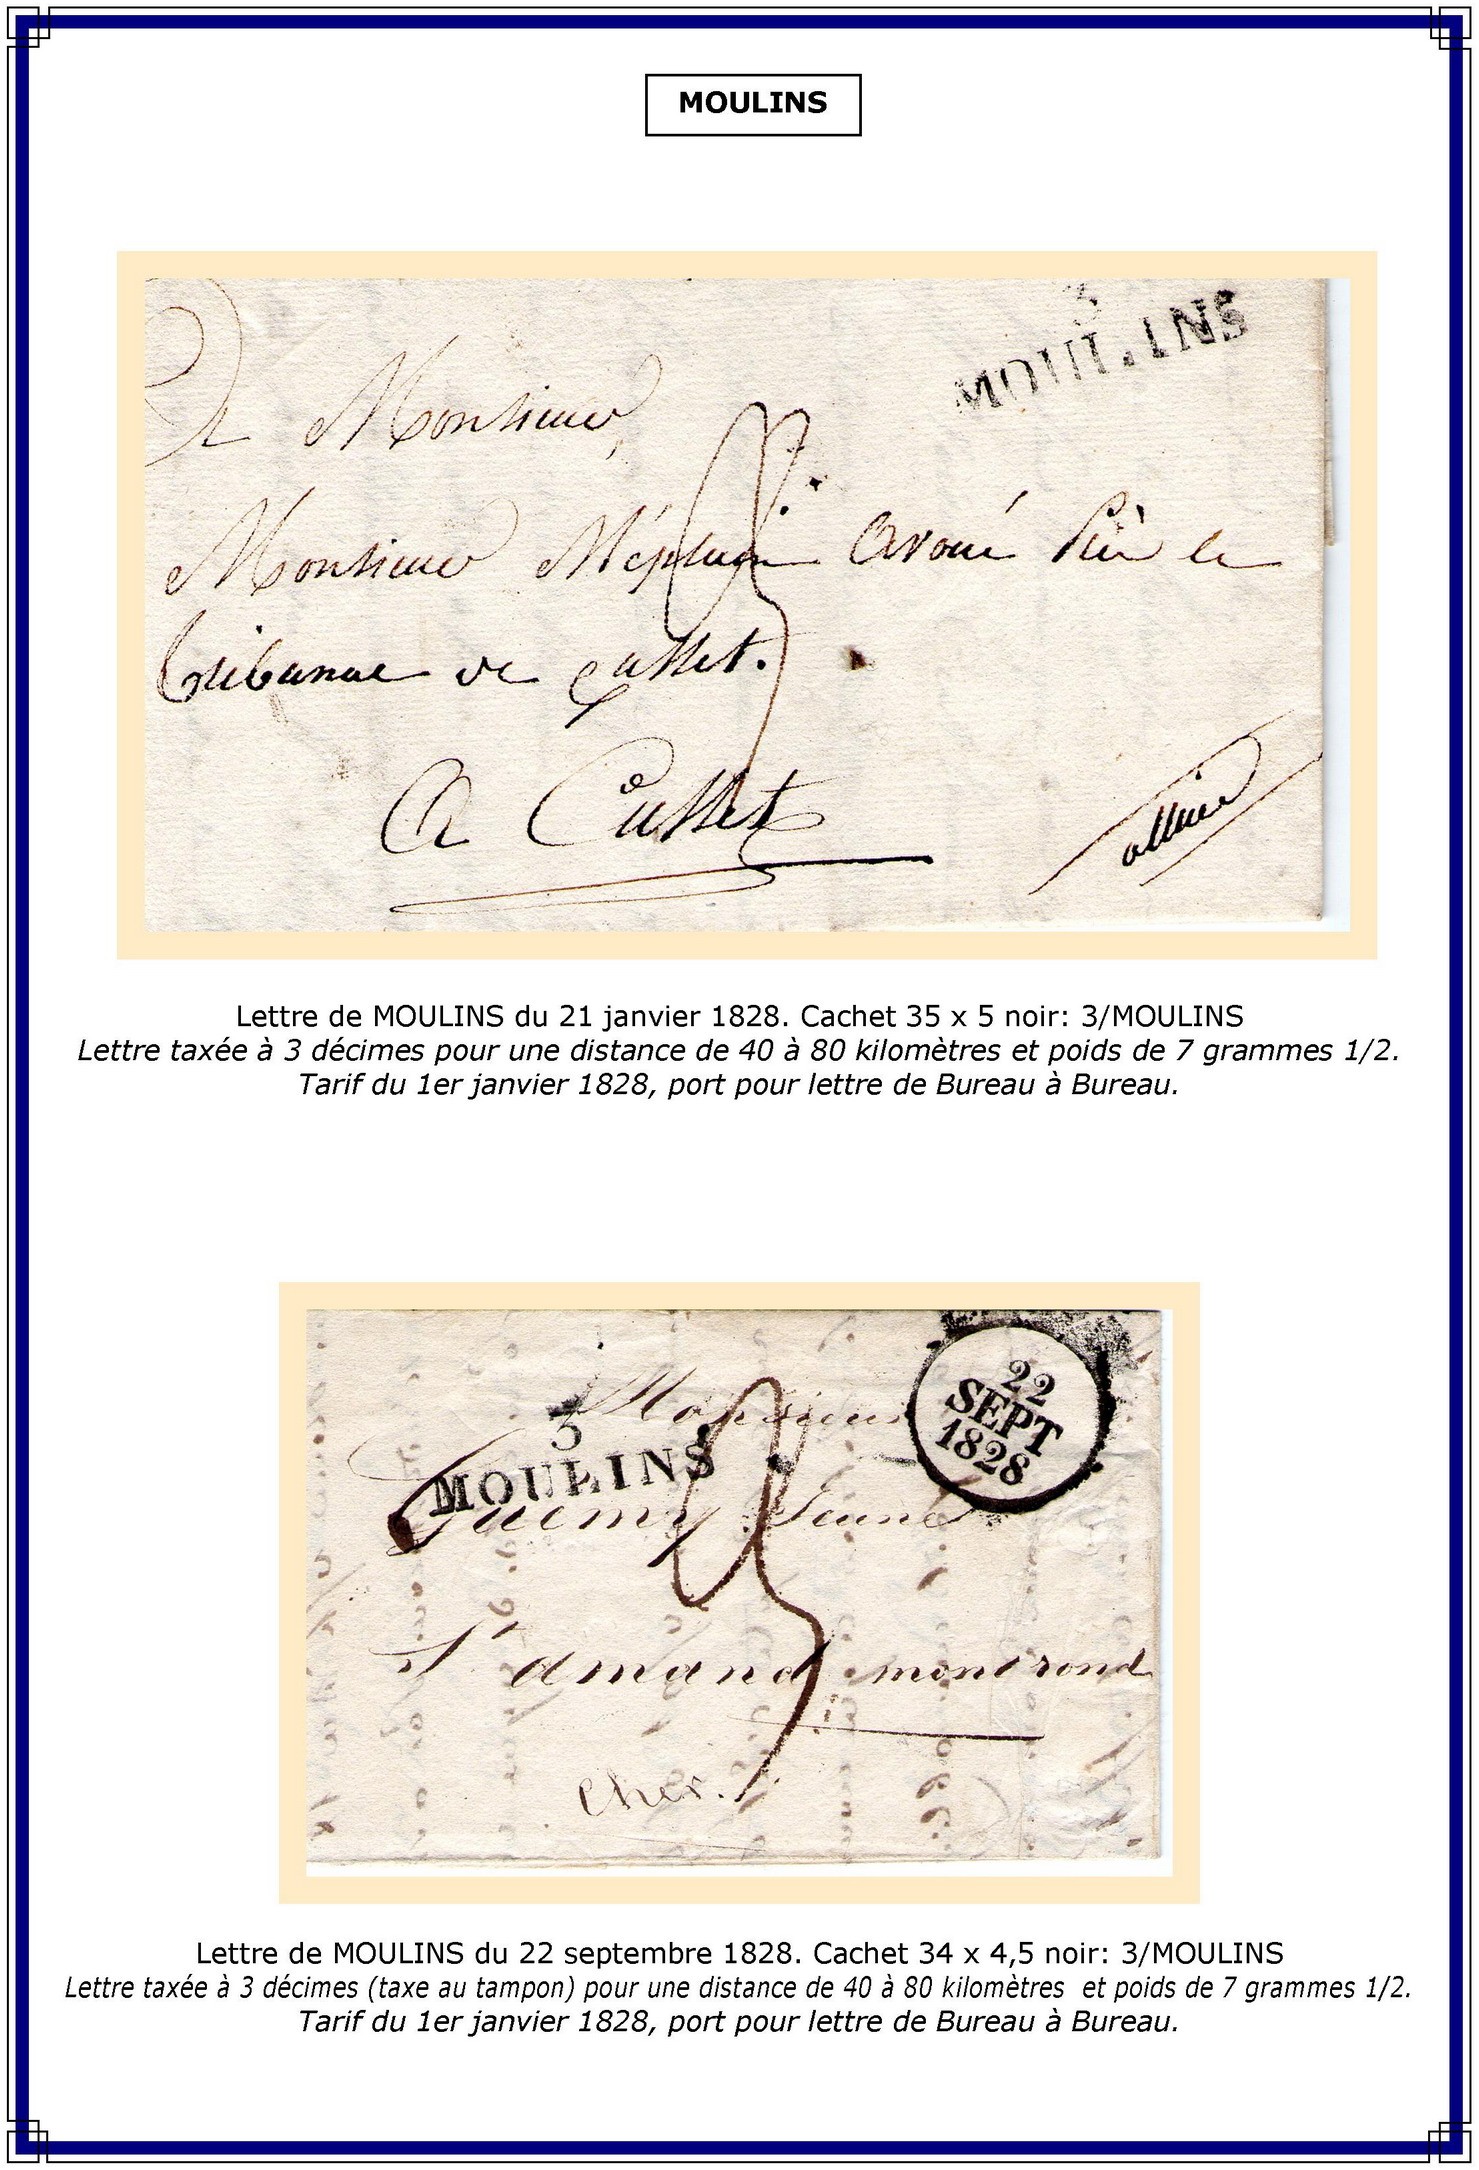 MOULINS
3
MOULINS
Monsieur,
Monsieur Méplain avoué près le
tribunal de Cusset.
3
A Cusset
allier
Lettre de MOULINS du 21 janvier 1828. Cachet 35 x 5 noir: 3/MOULINS
Lettre taxée à 3 décimes pour une distance de 40 à 80 kilomètres et poids de 7 grammes 1/2.
Tarif du 1er janvier 1828, port pour lettre de Bureau à Bureau.
22
SEPT
1828
Monsieur
3
MOULINS
jeune
3
St amand montrond
Cher.
Lettre de MOULINS du 22 septembre 1828. Cachet 34 x 4,5 noir: 3/MOULINS
Lettre taxée à 3 décimes (taxe au tampon) pour une distance de 40 à 80 kilomètres et poids de 7 grammes 1/2.
Tarif du 1er janvier 1828, port pour lettre de Bureau à Bureau.